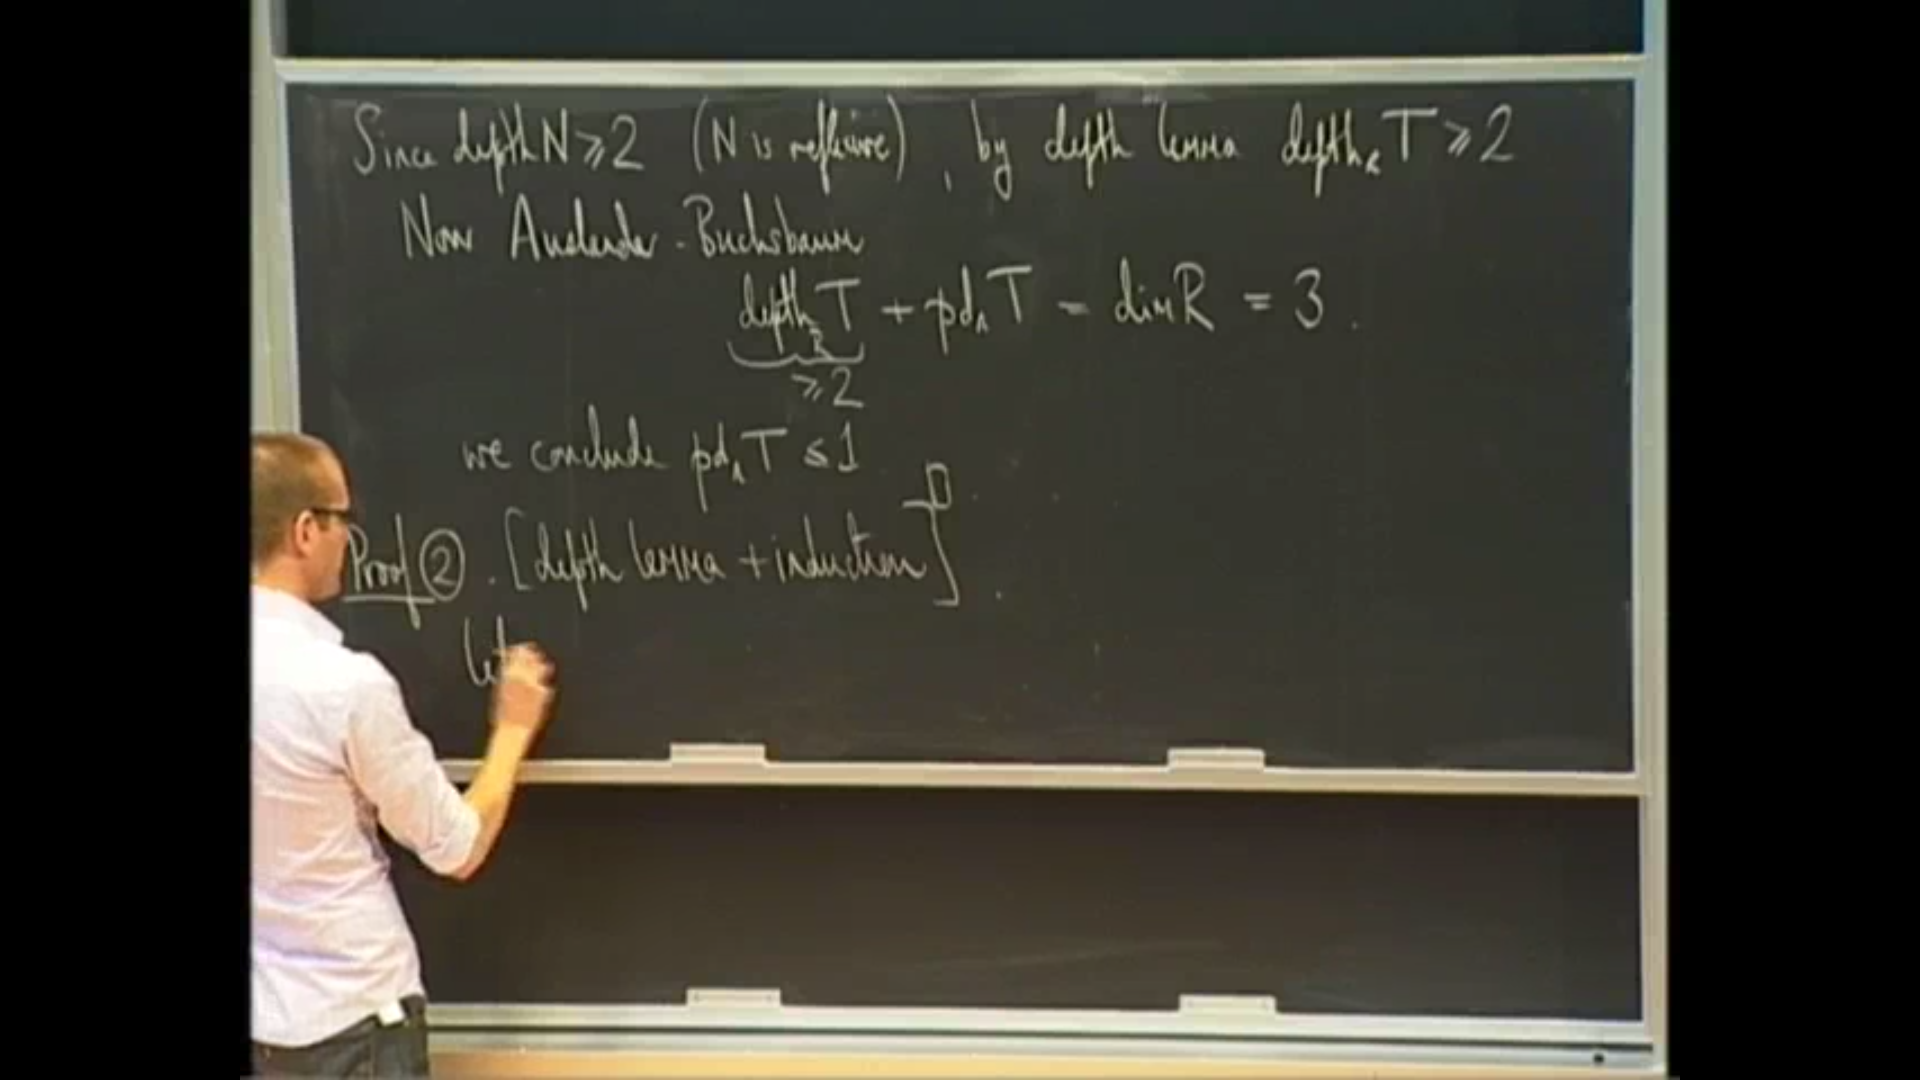 Since depth N ⩾ 2 (N is reflexive), by depth lemma depth_R T ⩾ 2
Now Auslander-Buchsbaum
depth_R T + pd_Λ T = dim R = 3.
⩾ 2
we conclude pd_Λ T ⩽ 1
□
Proof ② . [depth lemma + induction].
let